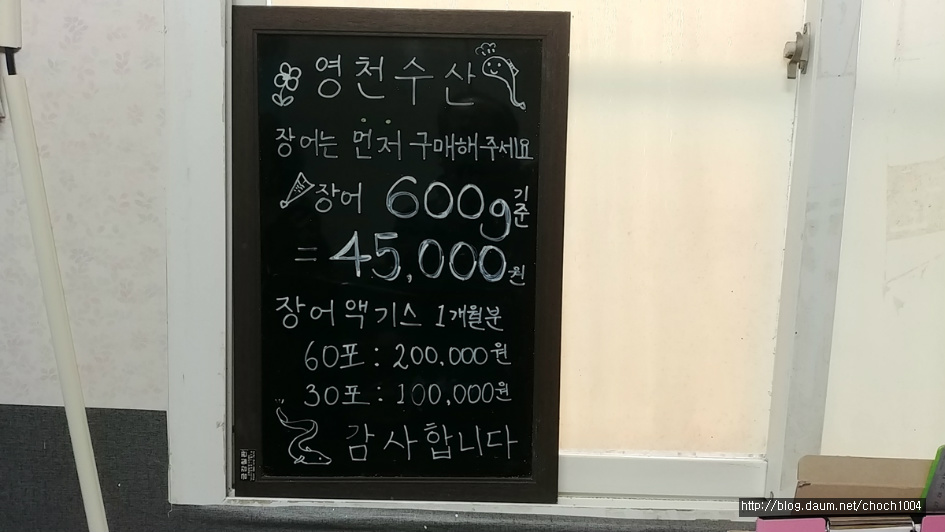 영천수산
장어는 먼저 구매해주세요
장어 600g 기준
= 45,000원
장어액기스 1개월분
60포 : 200.000원
30포 : 100,000원
감사합니다
http://blog.daum.net/choch1004